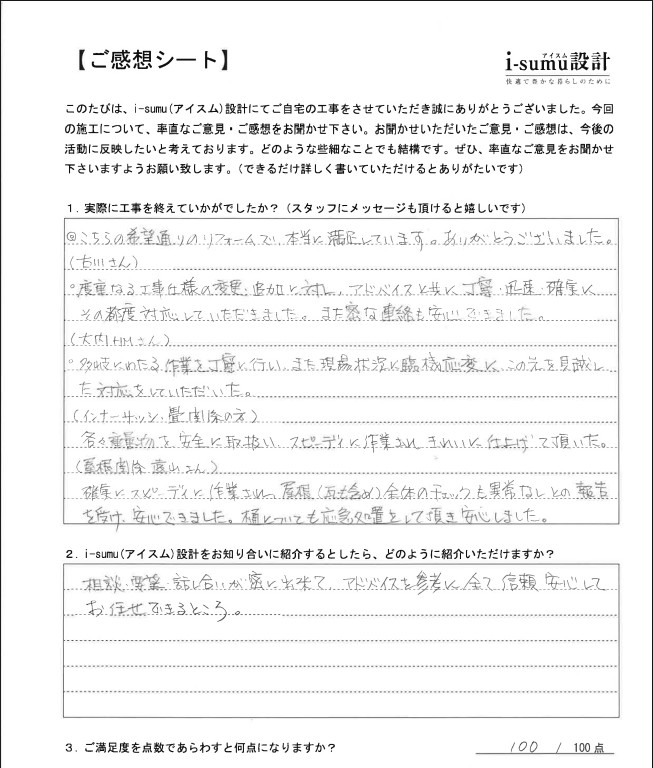 【ご感想シート】
アイスム
i-sumu設計
快適で豊かな暮らしのために
このたびは、i-sumu(アイスム)設計にてご自宅の工事をさせていただき誠にありがとうございました。今回
の施工について、率直なご意見・ご感想をお聞かせ下さい。お聞かせいただいたご意見・ご感想は、今後の
活動に反映したいと考えております。どのような些細なことでも結構です。ぜひ、率直なご意見をお聞かせ
下さいますようお願い致します。(できるだけ詳しく書いていただけるとありがたいです)
1. 実際に工事を終えていかがでしたか？（スタッフにメッセージも頂けると嬉しいです）
◎こちらの希望通りのリフォームで、本当に満足しています。ありがとうございました。
(古川さん)
○度重なる工事仕様の変更・追加に対し、アドバイスと共に丁寧・迅速・確実に
その都度対応していただきました。また密な連絡も安心できました。
(大内さん)
○多岐にわたる作業を丁寧に行い、また現場状況に臨機応変に、この先を見越し
た対応をしていただいた。
(インナーサッシ・畳関係の方)
各々重量物を安全に取扱い、スピーディに作業され きれいに仕上げて頂いた。
(屋根関係 さん)
確実にスピーディに作業され、屋根(瓦も含め)全体のチェックも異常なしとの報告
を受け、安心できました。樋についても応急処置をして頂き安心しました。
2. i-sumu(アイスム)設計をお知り合いに紹介するとしたら、どのように紹介いただけますか？
相談・要望・話し合いが密に出来て、アドバイスを参考に全て信頼 安心して
お任せできるところ。
3. ご満足度を点数であらわすと何点になりますか？ 100 / 100点